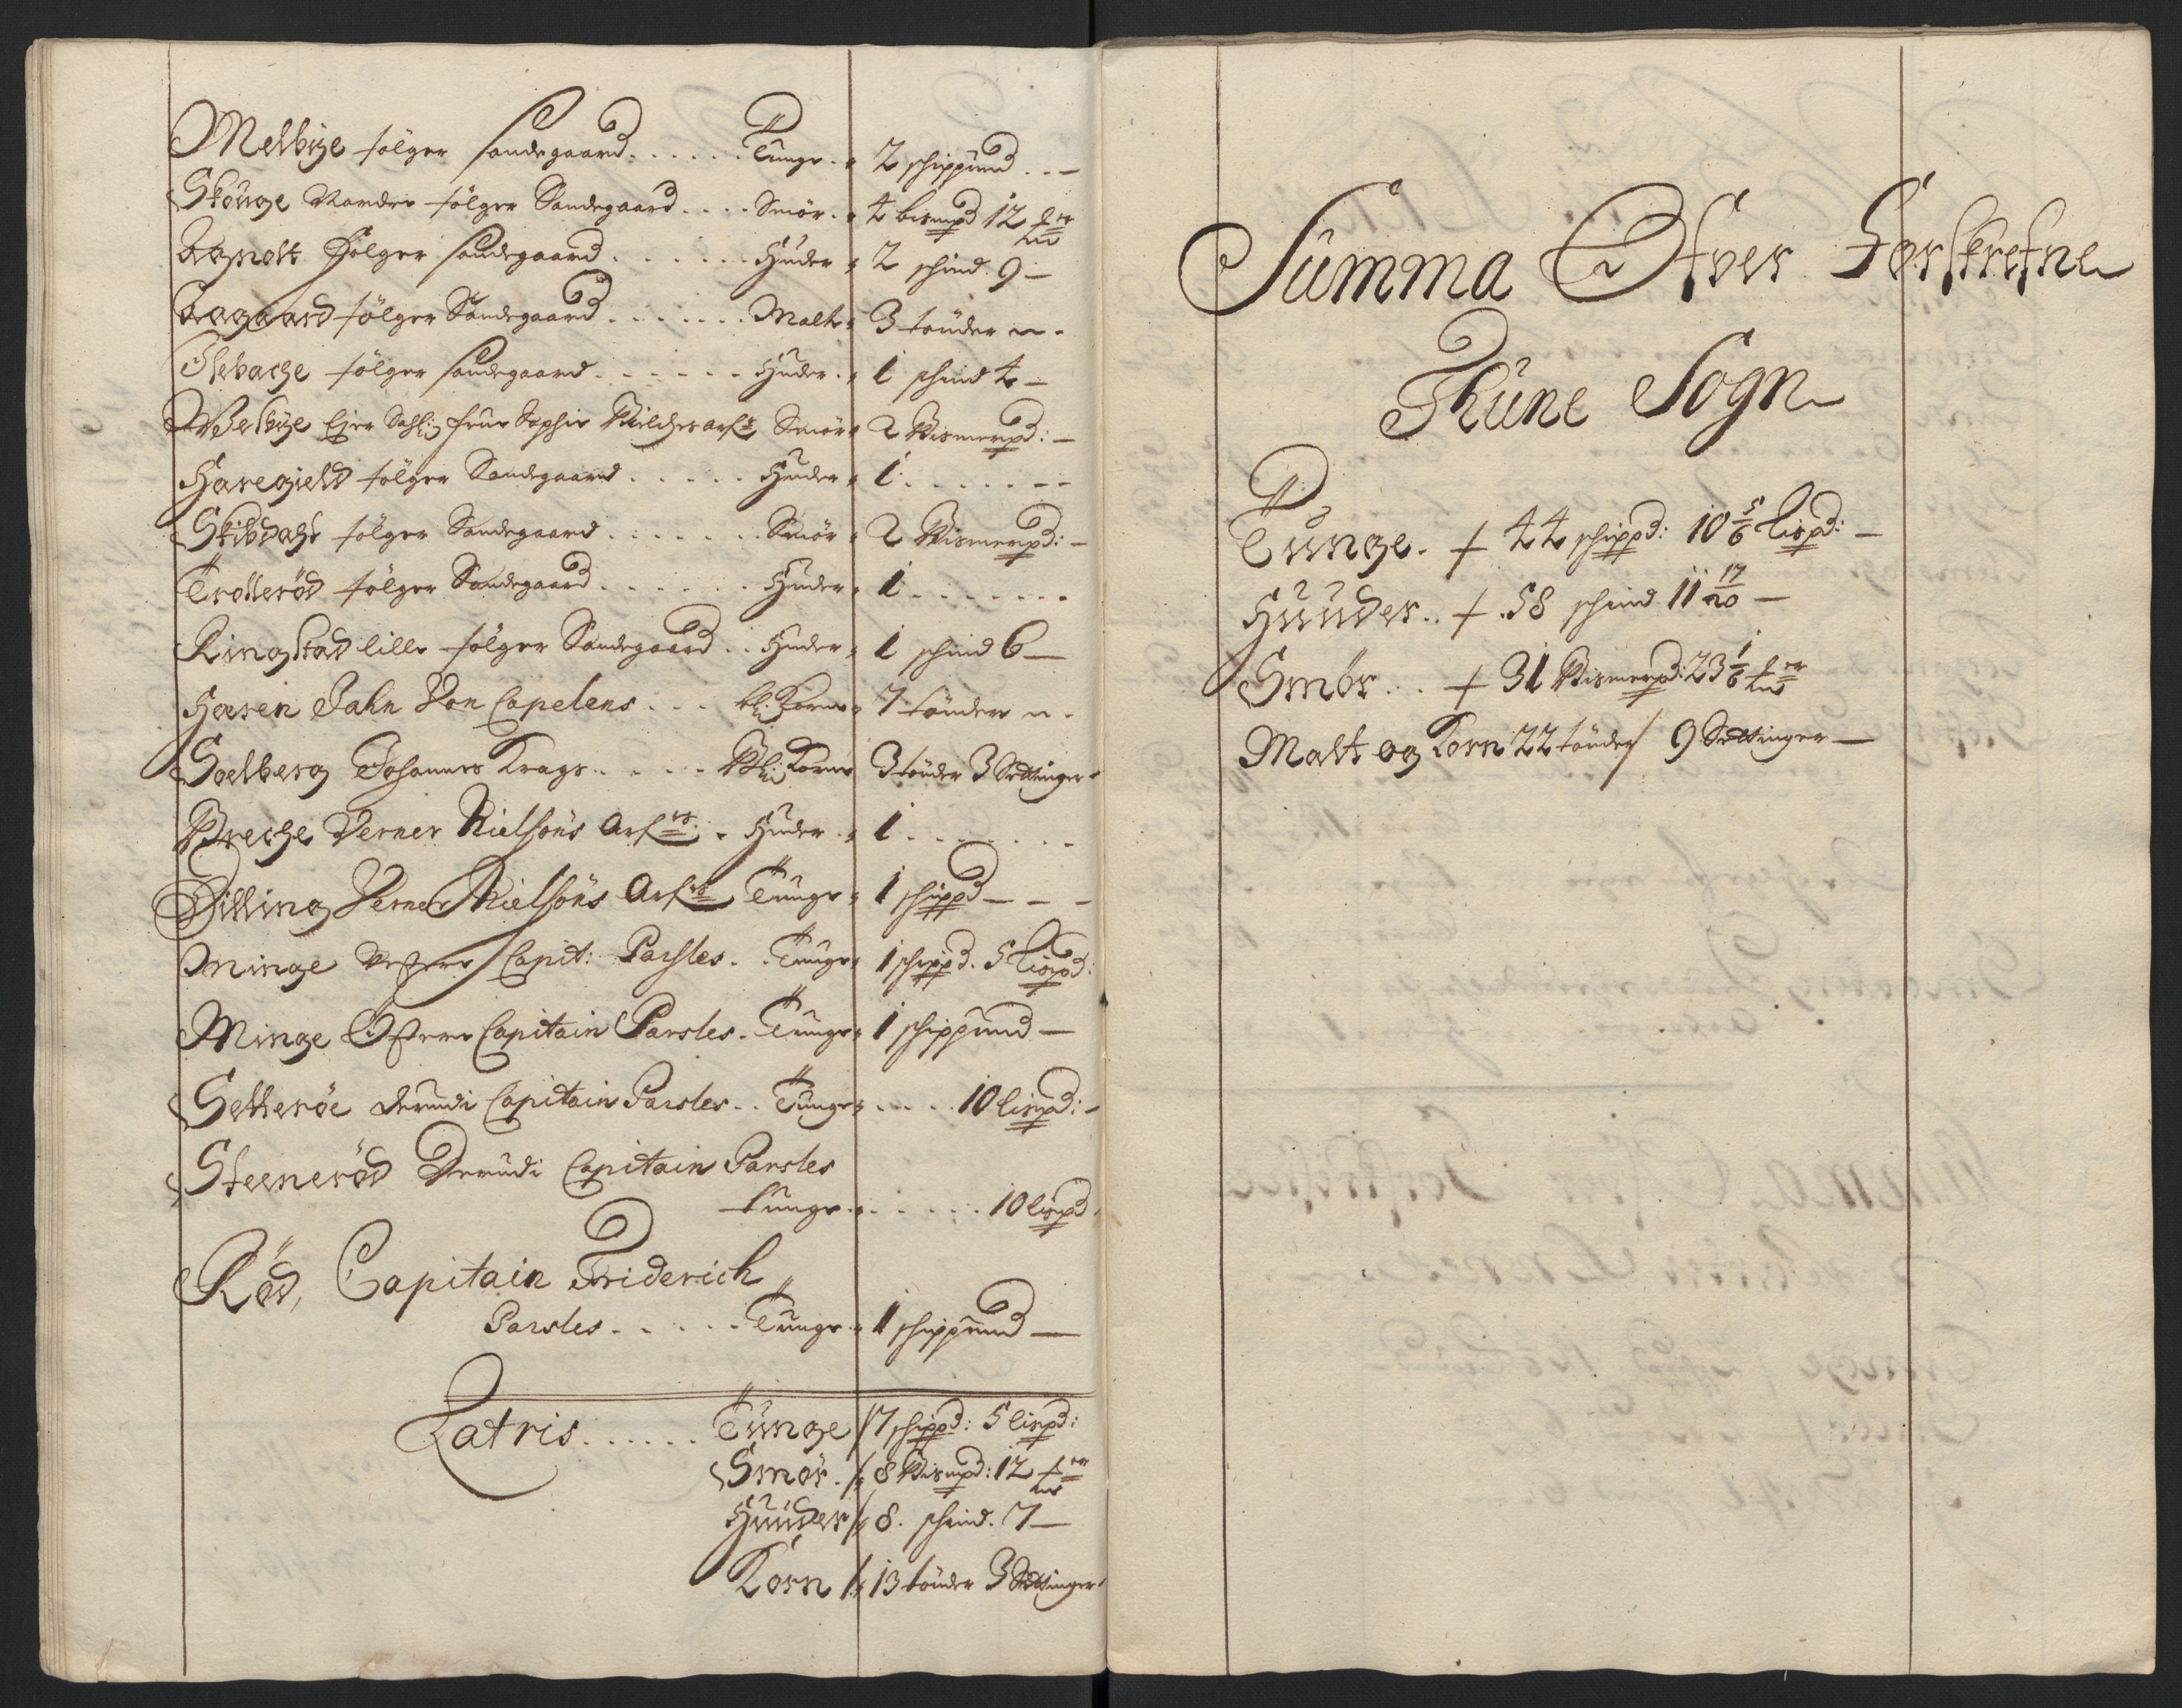 Melbÿe følger Sandegaard . . . . . . Tünge . 2 schippund . . –
Skoüge Norder følger Sandegaard . . . . Smör . 4 bismpd 12
følger Sandegaard . . . . . . Huder 2 schind 9 –
Aagaard følger Sandegaard . . . . . . . Malt 3 tönder
følger Sandegaard . . . . . . Huder . 1 schind 4 –
Ejer Sahl: frue Sophie Smör 2 Bismerpd: –
Haregield følger Sandegaard . . . . . Huder 1 . . . . . . .
Skibdahl følger Sandegaard . . . . . . . Smör 2 Bismerpd: –
Trollerød følger Sandegaard . . . . . . Huder 1 . . . . . . .
Ringstad lille følger Sandegaard . . Huder 1 schind 6 –
Haren Jahn Von Capelens . . . bl: Korn 7 tönder
Soelberg Johannes Krags . . . . . Bl: Korn 3 tönder 3 Settinger
Breche Verner Nielsöns Arf . Huder . 1 . . . . . . .
Dilling Verner Nielsöns Arf Tünge 1 schippd – – –
Minge Vestere Capit: Parsles . . Tünge 1 schippd. 5 Lispd:
Minge Östere Capitain Parsles . Tünge 1 schippund –
Setterøe Capitain Parsles . . Tünge . . . . 10 lispd: –
Steenerød Capitain Parsles
Tünge . . . . . . 10 lispd
Rød, Capitain Friderich
Parsles . . . . . Tünge . 1 schippund –
Latris . . . . . . Tünge 17 schippd: 5 lispd:
Smör . 8 Bismpd: 12
Huuder 8 . schind . 7 –
Korn 13 tönder 3 Settinger
Summa Ofver Forskrefne
Thüne Sogn
Tünge . 44 schippd: 10 5/6 Lispd: –
Huuder . . 58 schind 11 17/20 –
Smör . . . 31 Bismerpd: 23 1/6
Malt og Korn 22 tönder 9 Settinger –